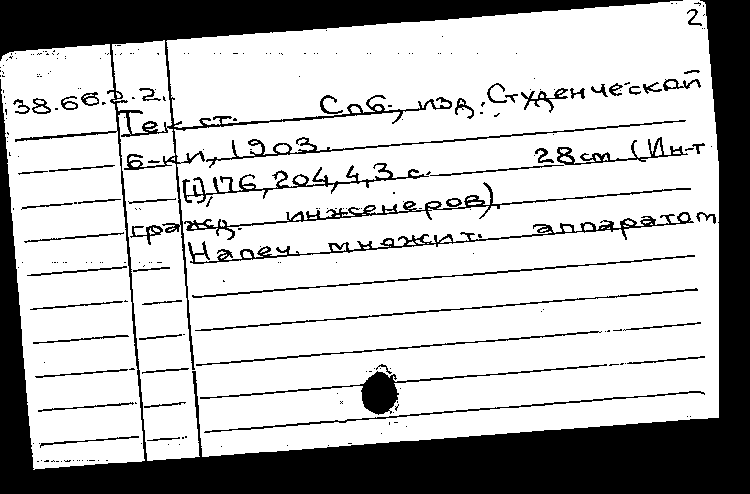 2
38.66.2.2. Текст. Спб., изд. Студенческой
б-ки, 1903.
[1], 176, 204, 4, 3 с. 28 см. (Ин-т
гражд. инженеров).
Напеч. множит. аппаратом